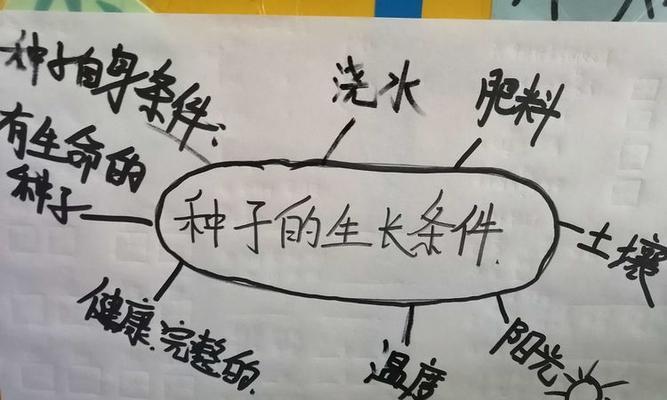 种子自身条件:
有生命的
种子
健康.完整的.
浇水
肥料
种子的生长条件.
土壤
阳光
温度